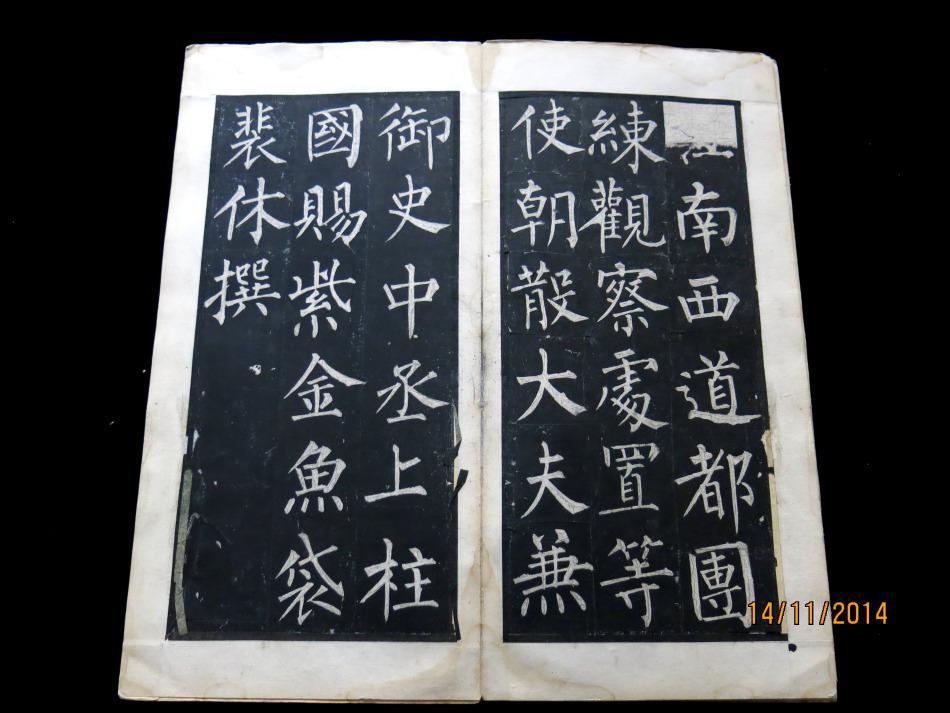 江南西道都團
練觀察處置等
使朝散大夫兼
御史中丞上柱
國賜紫金魚袋
裴休撰
14/11/2014